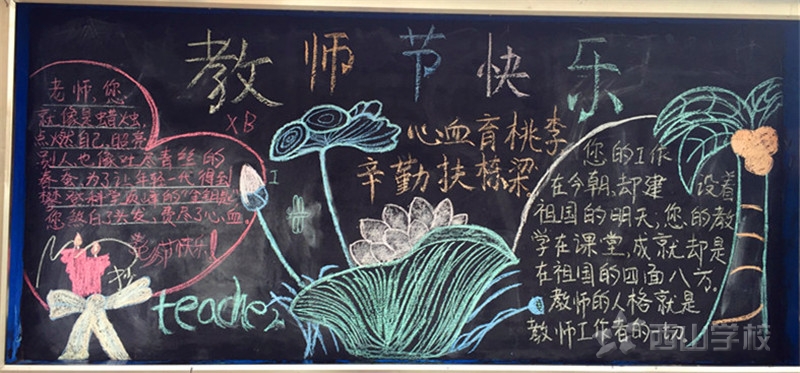 教师节快乐
老师,您
就像是蜡烛
点燃自己,照亮
别人也像吐尽青丝的
春蚕,为了让年轻一代得到
您熬白了头发,费尽了心血。
XB
心血育桃李
辛勤扶栋梁
您的工作
在今朝,却建设着
祖国的明天;您的教
学在课堂,成就却是
在祖国的四面八方。
教师的人格就是
教师工作者的一切
teacher
西山学校